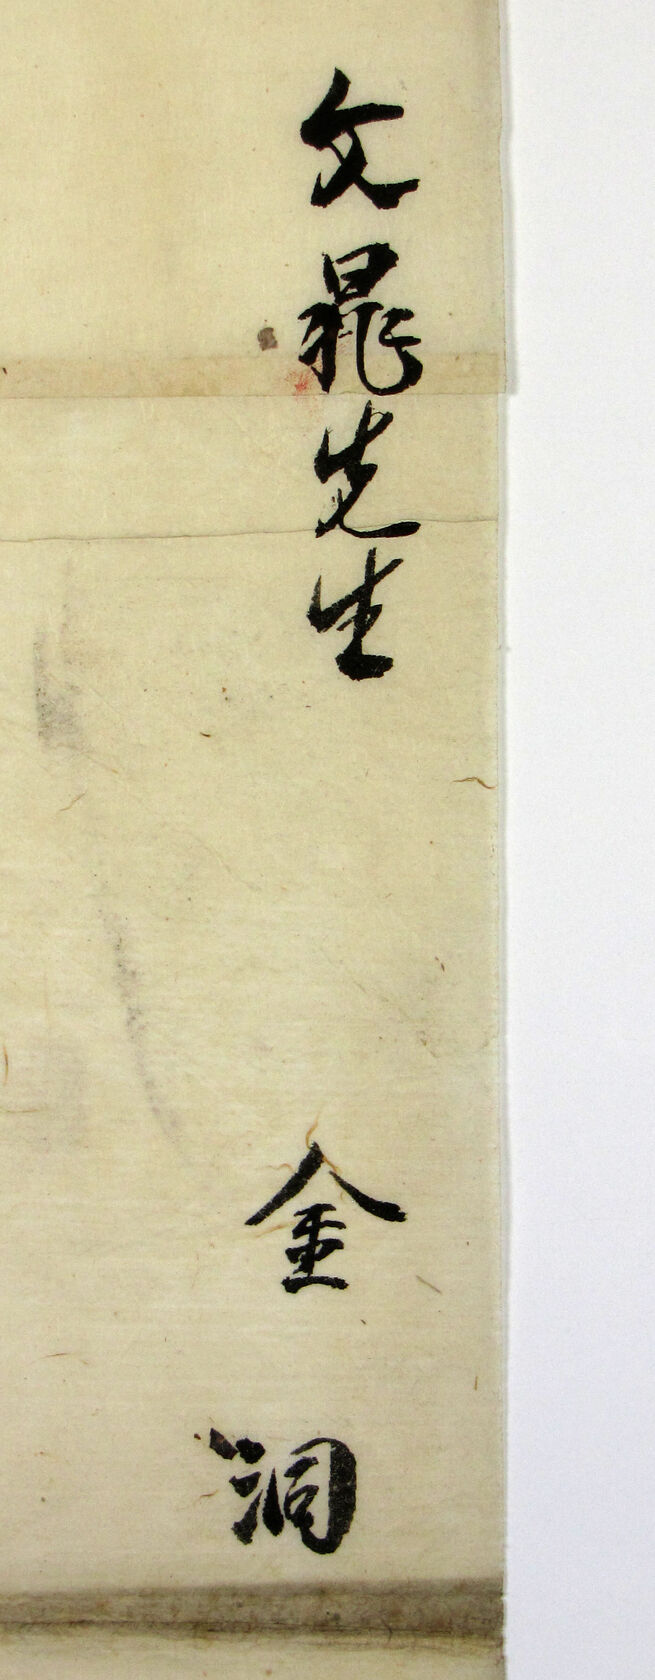 文晁先生
金洞